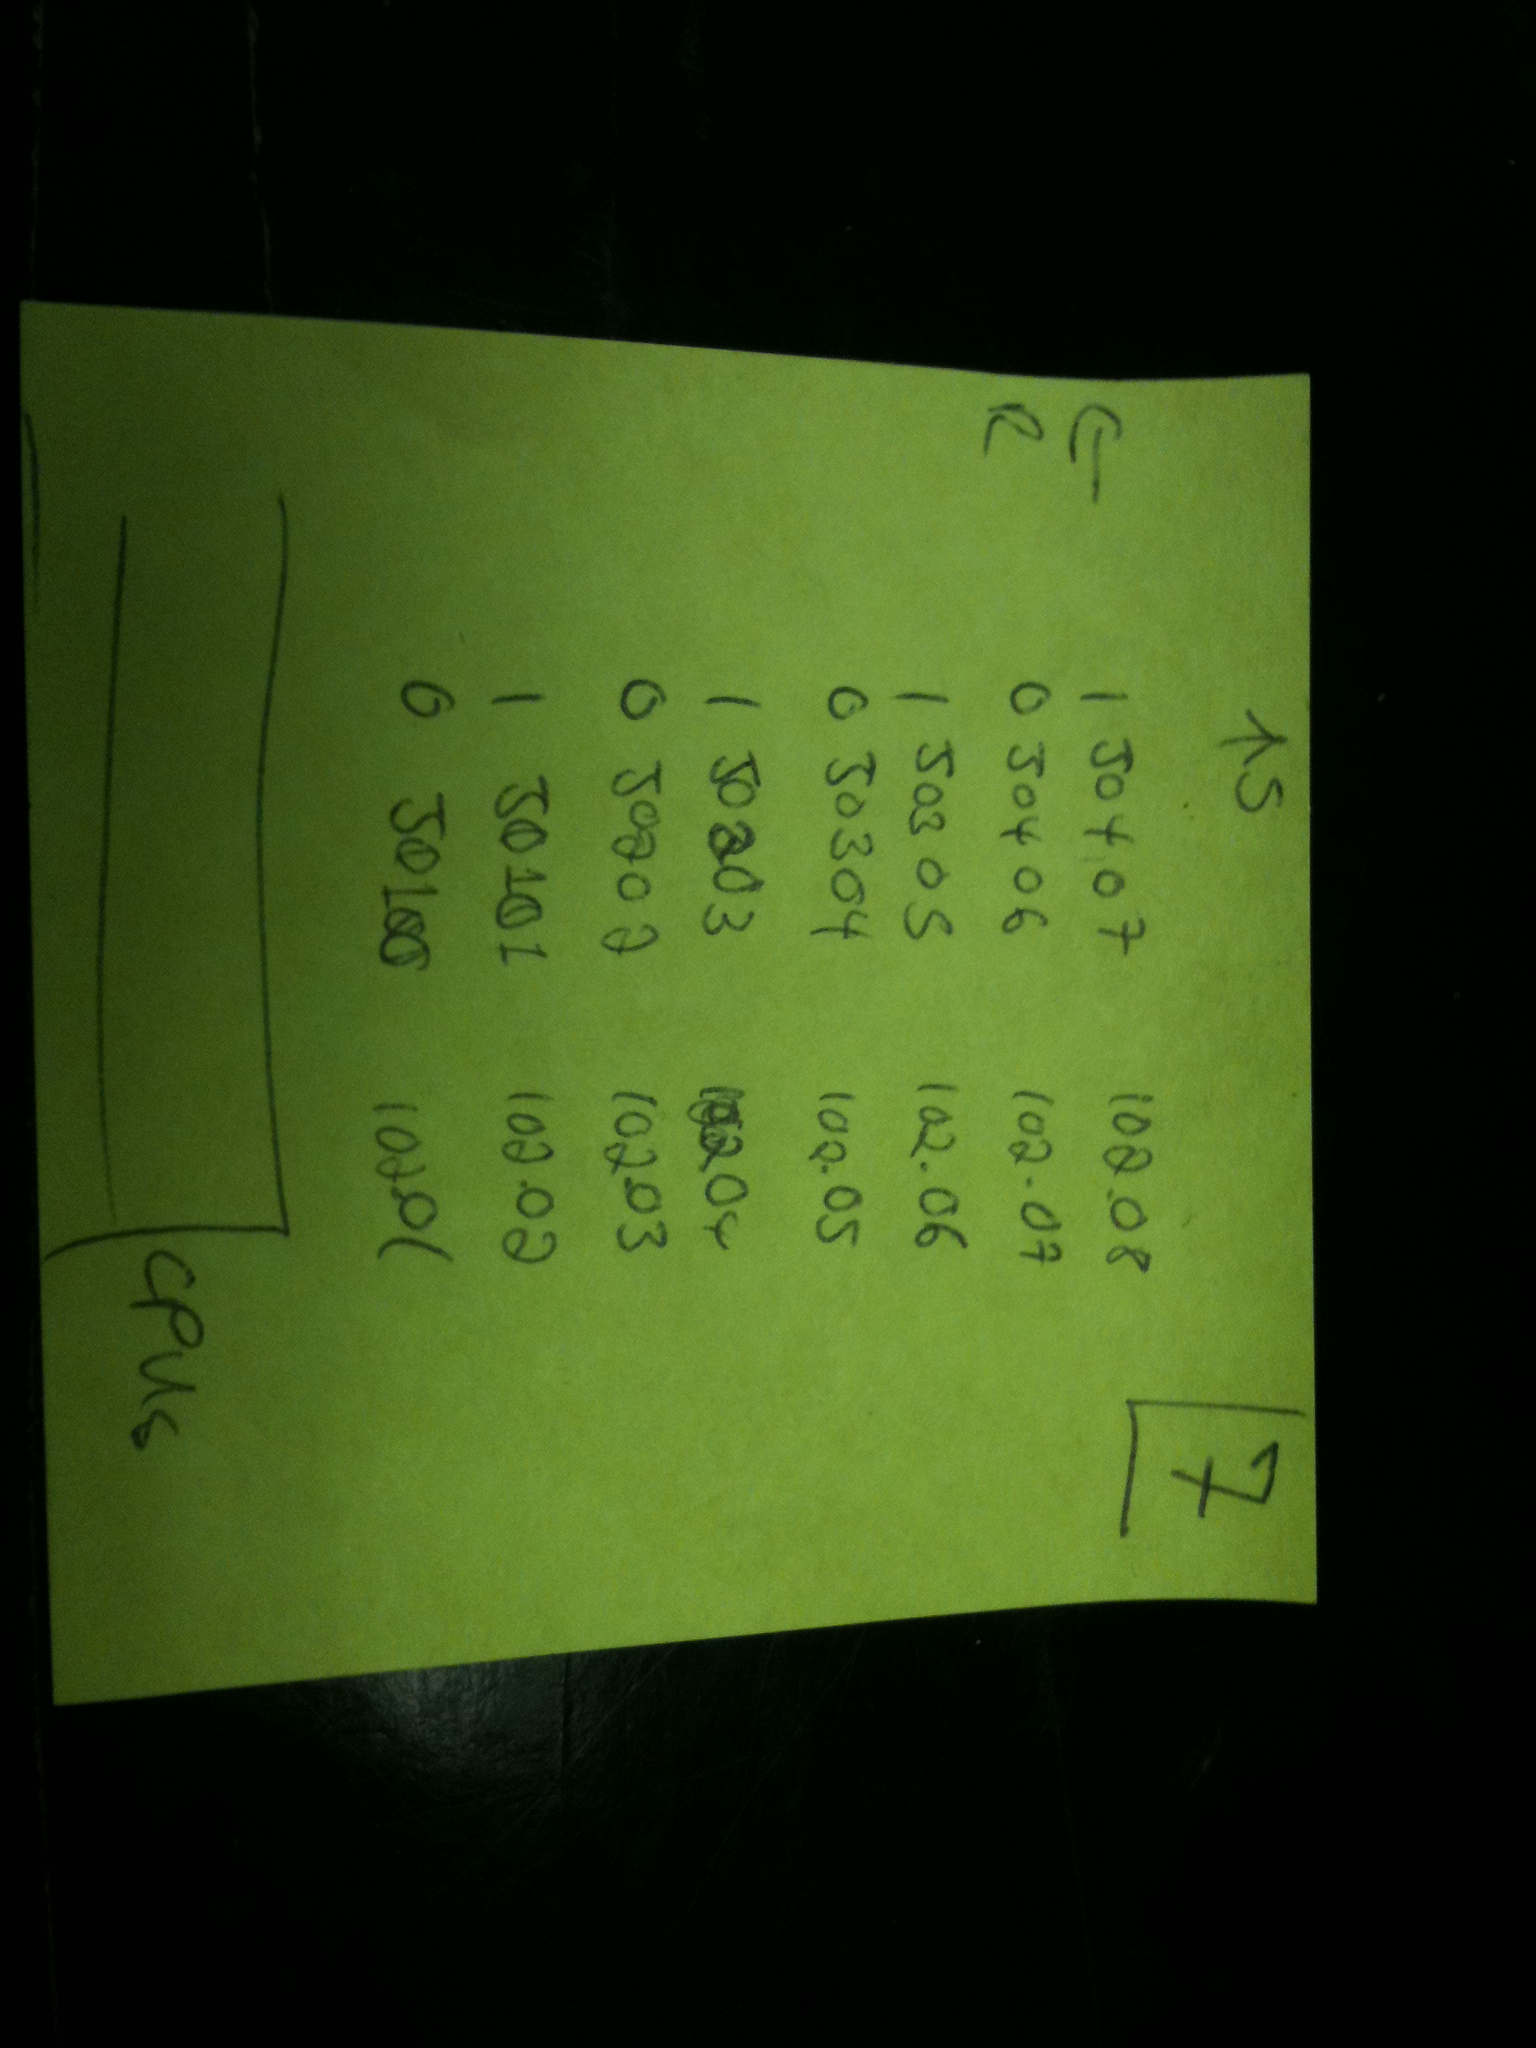 ↑S 7
← 1 J0407 102.08
R 0 J0406 102.07
1 J0305 102.06
0 J0304 102.05
1 J0203 10204
0 J0202 102.03
1 J0101 102.02
0 J0100 102.01
CPUs